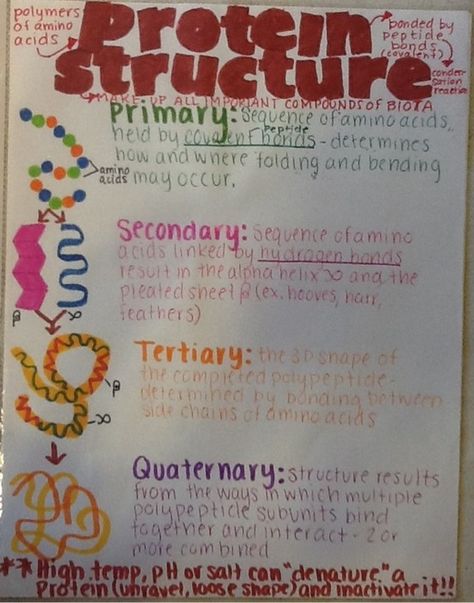 polymers
of amino
acids
Protein
structure
bonded by
peptide
bonds
(covalent)
conden-
sation
reaction
MAKE UP ALL IMPORTANT COMPOUNDS OF BIOTA
Primary: Sequence of amino acids,
peptide
held by covalent bonds - determines
how and where folding and bending
may occur.
amino
acids
Secondary: Sequence of amino
acids linked by hydrogen bonds
result in the alpha helix ∝ and the
pleated sheet β (ex. hooves, hair,
feathers)
β
∝
Tertiary: the 3D shape of
the completed polypeptide-
determined by bonding between
side chains of amino acids
β
∝
Quaternary: structure results
from the ways in which multiple
polypeptide subunits bind
together and interact - 2 or
more combined
** High temp, pH or salt can "denature" a
protein (unravel, loose shape) and inactivate it!!